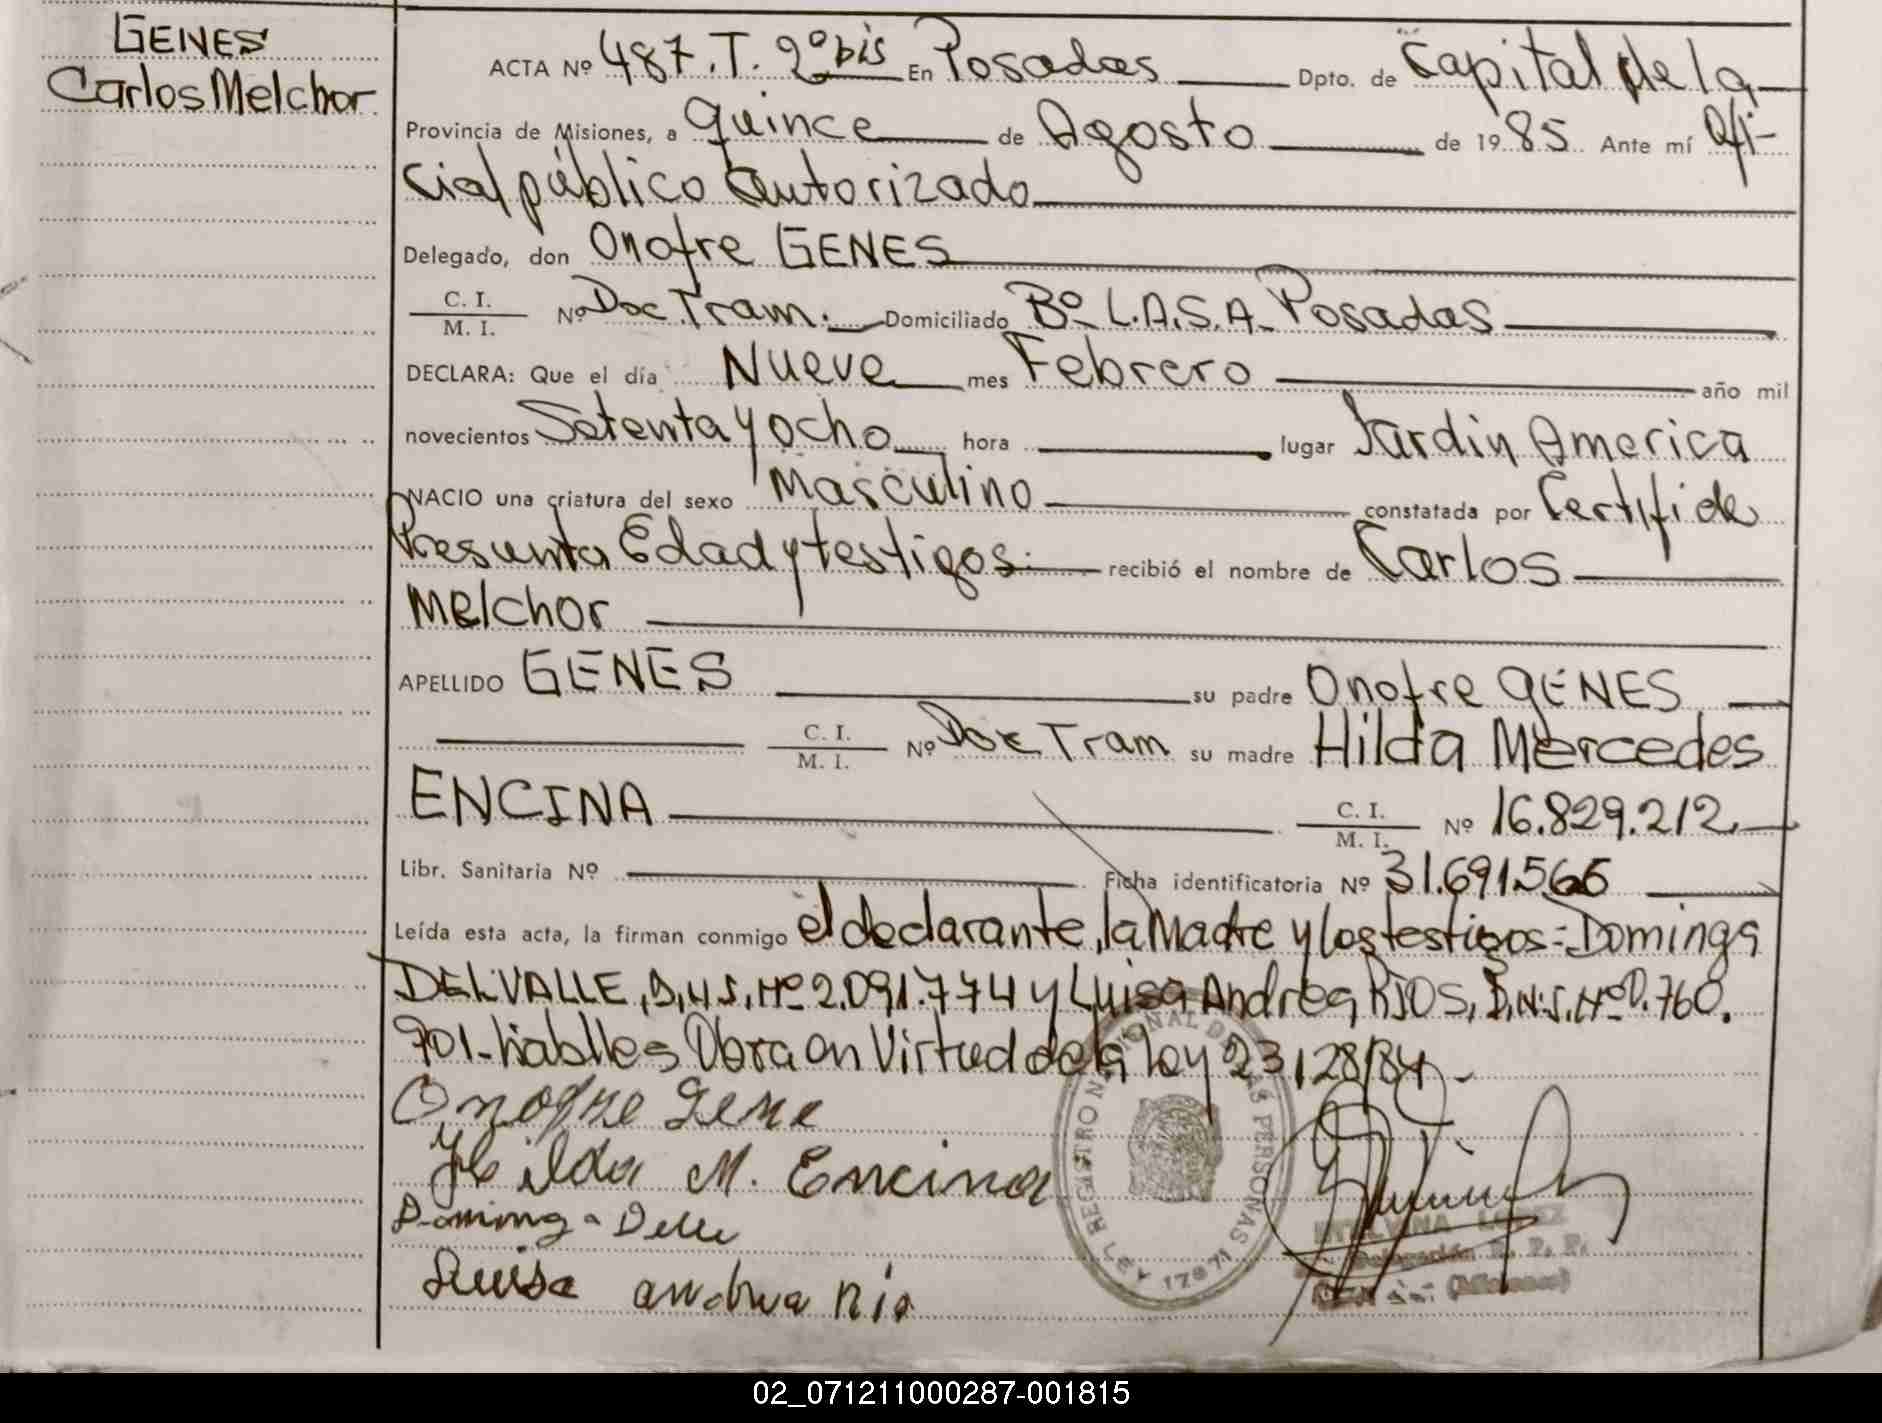 GENES
Carlos Melchor
ACTA Nº 487.T. 2º bis En Posadas Dpto. de Capital de la
Provincia de Misiones, a quince de Agosto de 1985. Ante mí Ofi-
cial público autorizado
Delegado, don Onofre GENES
C. I.
M. I. Nº Doc Tram. Domiciliado Bº L.A.S.A. Posadas
DECLARA: Que el día Nueve mes Febrero año mil
novecientos Setenta y ocho hora lugar Jardin America
NACIO una criatura del sexo Masculino constatada por Certifi de
Presunta Edad y testigos. recibió el nombre de Carlos
Melchor
APELLIDO GENES su padre Onofre GENES
C. I.
M. I. Nº Doc Tram su madre Hilda Mercedes
ENCINA C. I.
M. I. Nº 16.829.212.
Libr. Sanitaria Nº Ficha identificatoria Nº 31.691.566
Leída esta acta, la firman conmigo el declarante, la Madre y los testigos: Dominga
DEL VALLE, Nº 2.091.774 y Luisa Andrea RIOS, Nº 760.
901- habiles Obra en Virtud de la ley 23128/84-
Onofre Gene
Hilda M. Encina
Dominga Delle
Luisa andrea Rio
REGISTRO NACIONAL DE LAS PERSONAS
LEY 17671
ETELVINA LOPEZ
Delegación R. P. P.
(Misiones)
02_071211000287-001815